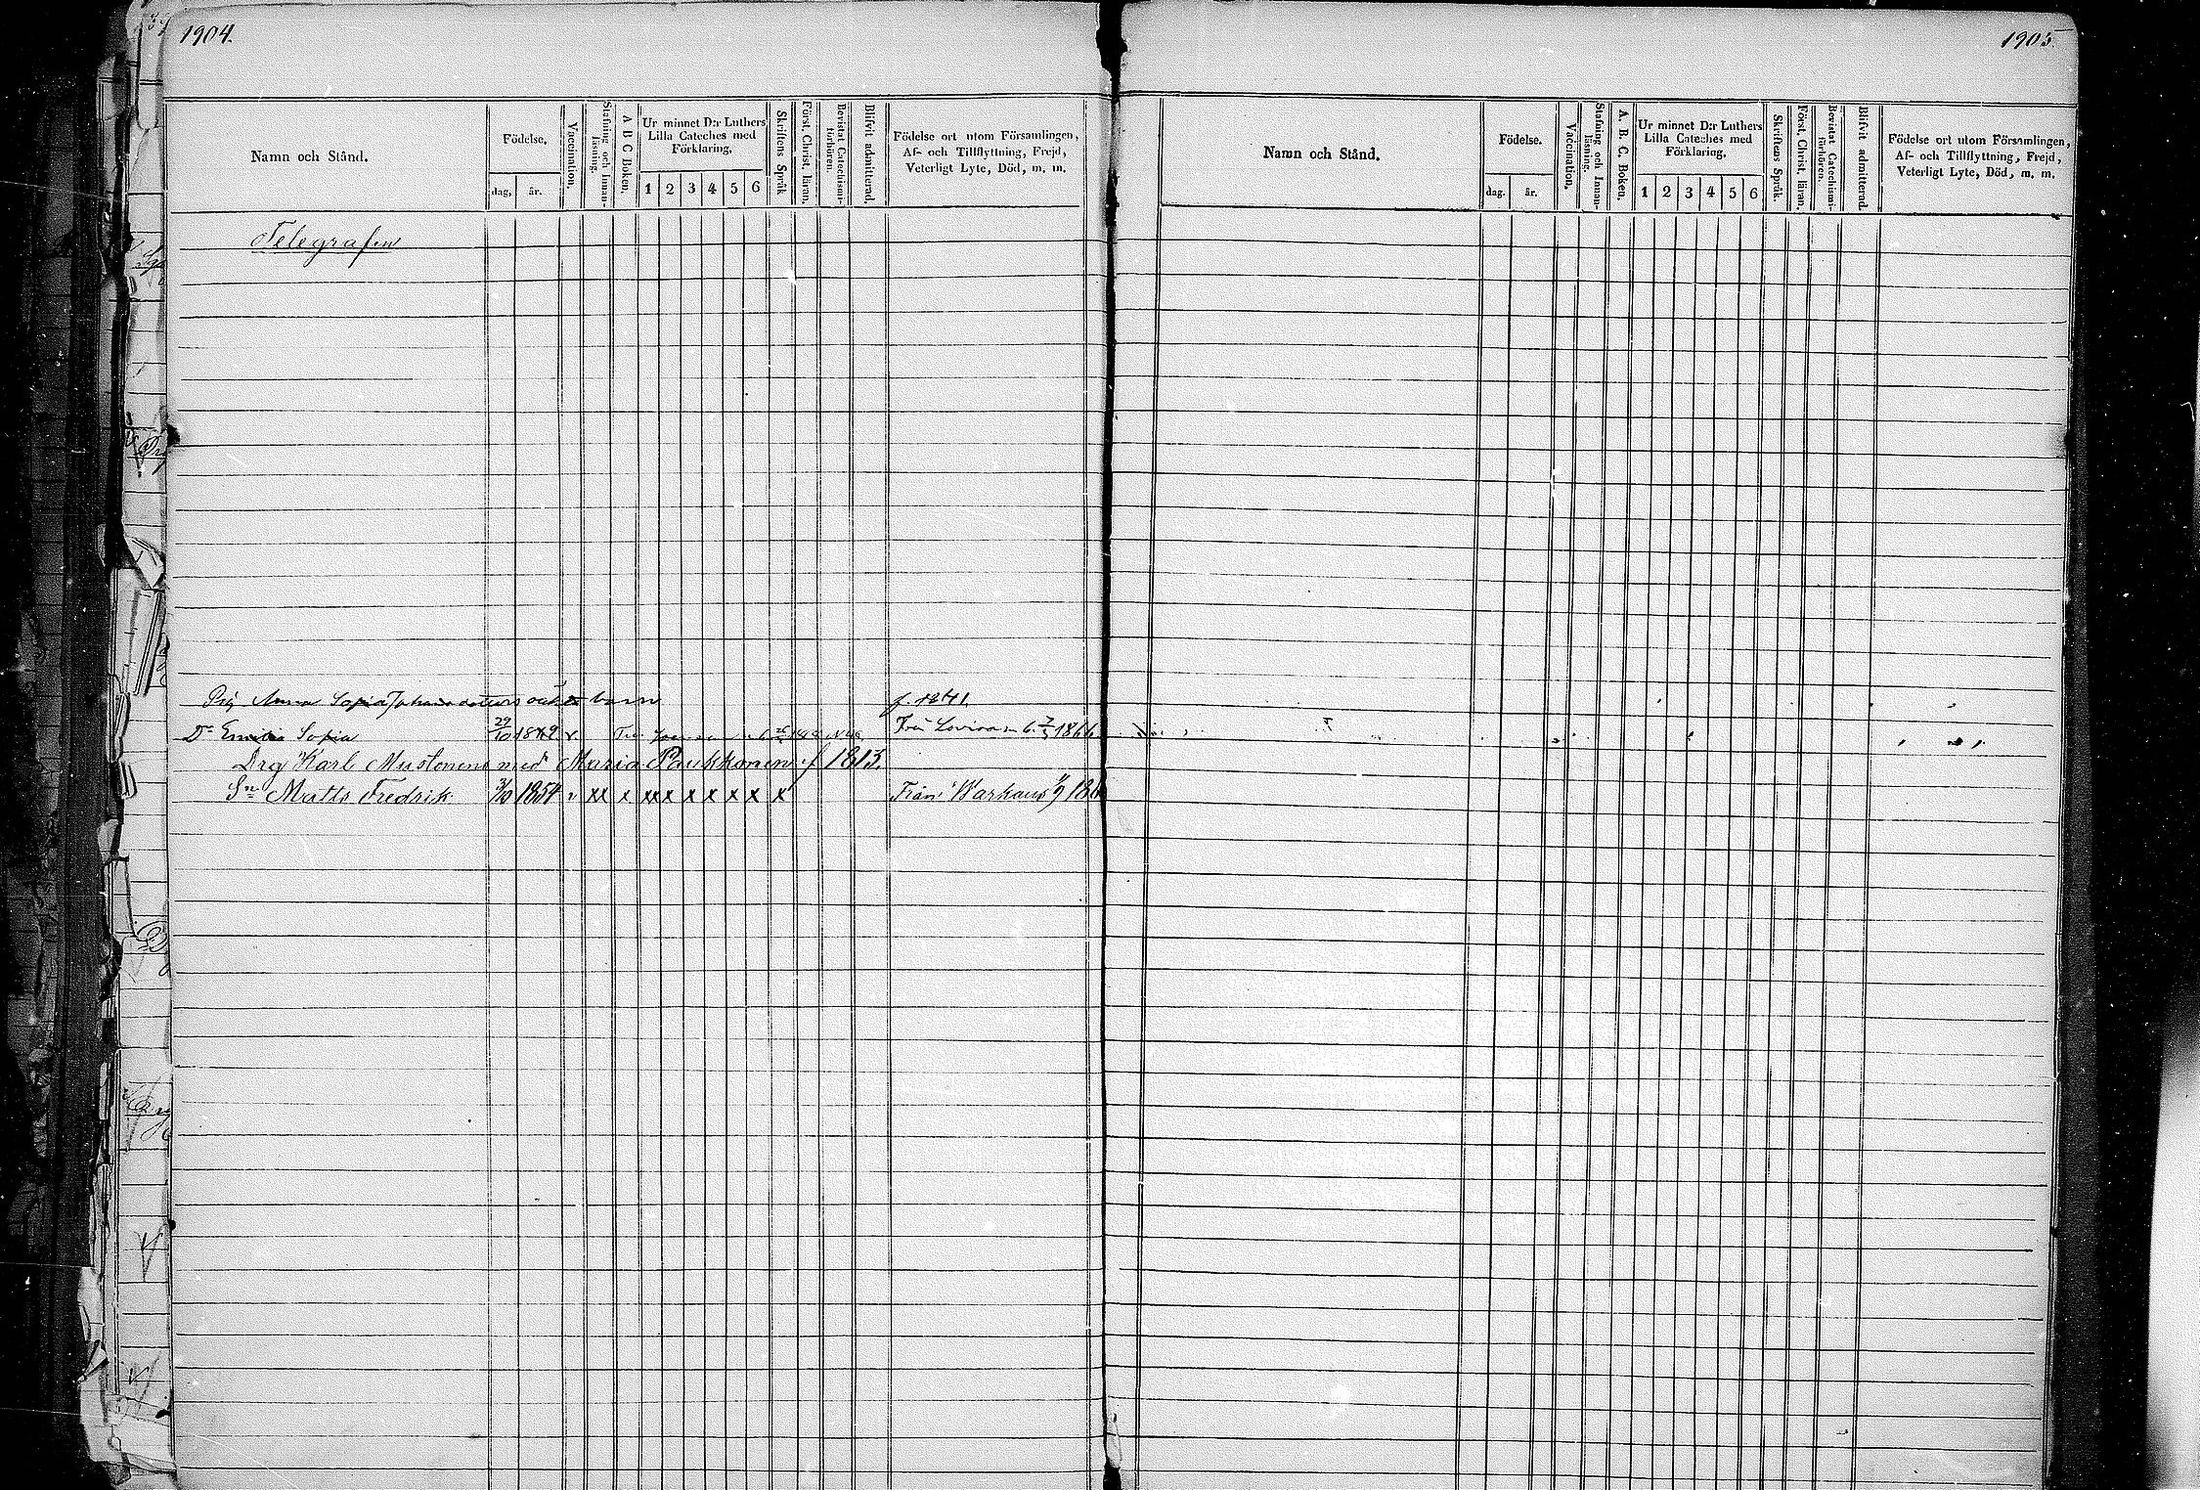 1904.
Namn och Stånd.
Födelse.
dag.
år.
Vaccination.
Stafning och Innanläsning.
A B C Boken.
Ur minnet D:r Luthers
Lilla Cateches med
Förklaring.
1 2 3 4 5 6
Skriftens Språk
Först. Christ. läran.
Bevistat Catechismiförhören.
Blifvit admitterad.
Födelse ort utom Församlingen,
Af- och Tillflyttning, Frejd,
Veterligt Lyte, Död, m. m.
Telegrafen
Pig Anna Sofia Johansdotters barn f. 1841.
Dr Sofia 29/10 Från Lovisa 1866
Drg Karl Mustonens med Maria Paukkonen f 1813.
Sn Matts Fredrik 3/10 1854 v xx x xx x x x x x x Från Warkaus
1905.
Namn och Stånd.
Födelse.
dag.
år.
Vaccination.
Stafning och Innanläsning.
A. B. C. Boken.
Ur minnet D:r Luthers
Lilla Cateches med
Förklaring.
1 2 3 4 5 6
Skriftens Språk.
Först. Christ. läran.
Bevistat Catechismiförhören.
Blifvit admitterad.
Födelse ort utom Församlingen,
Af- och Tillflyttning, Frejd,
Veterligt Lyte, Död, m. m.